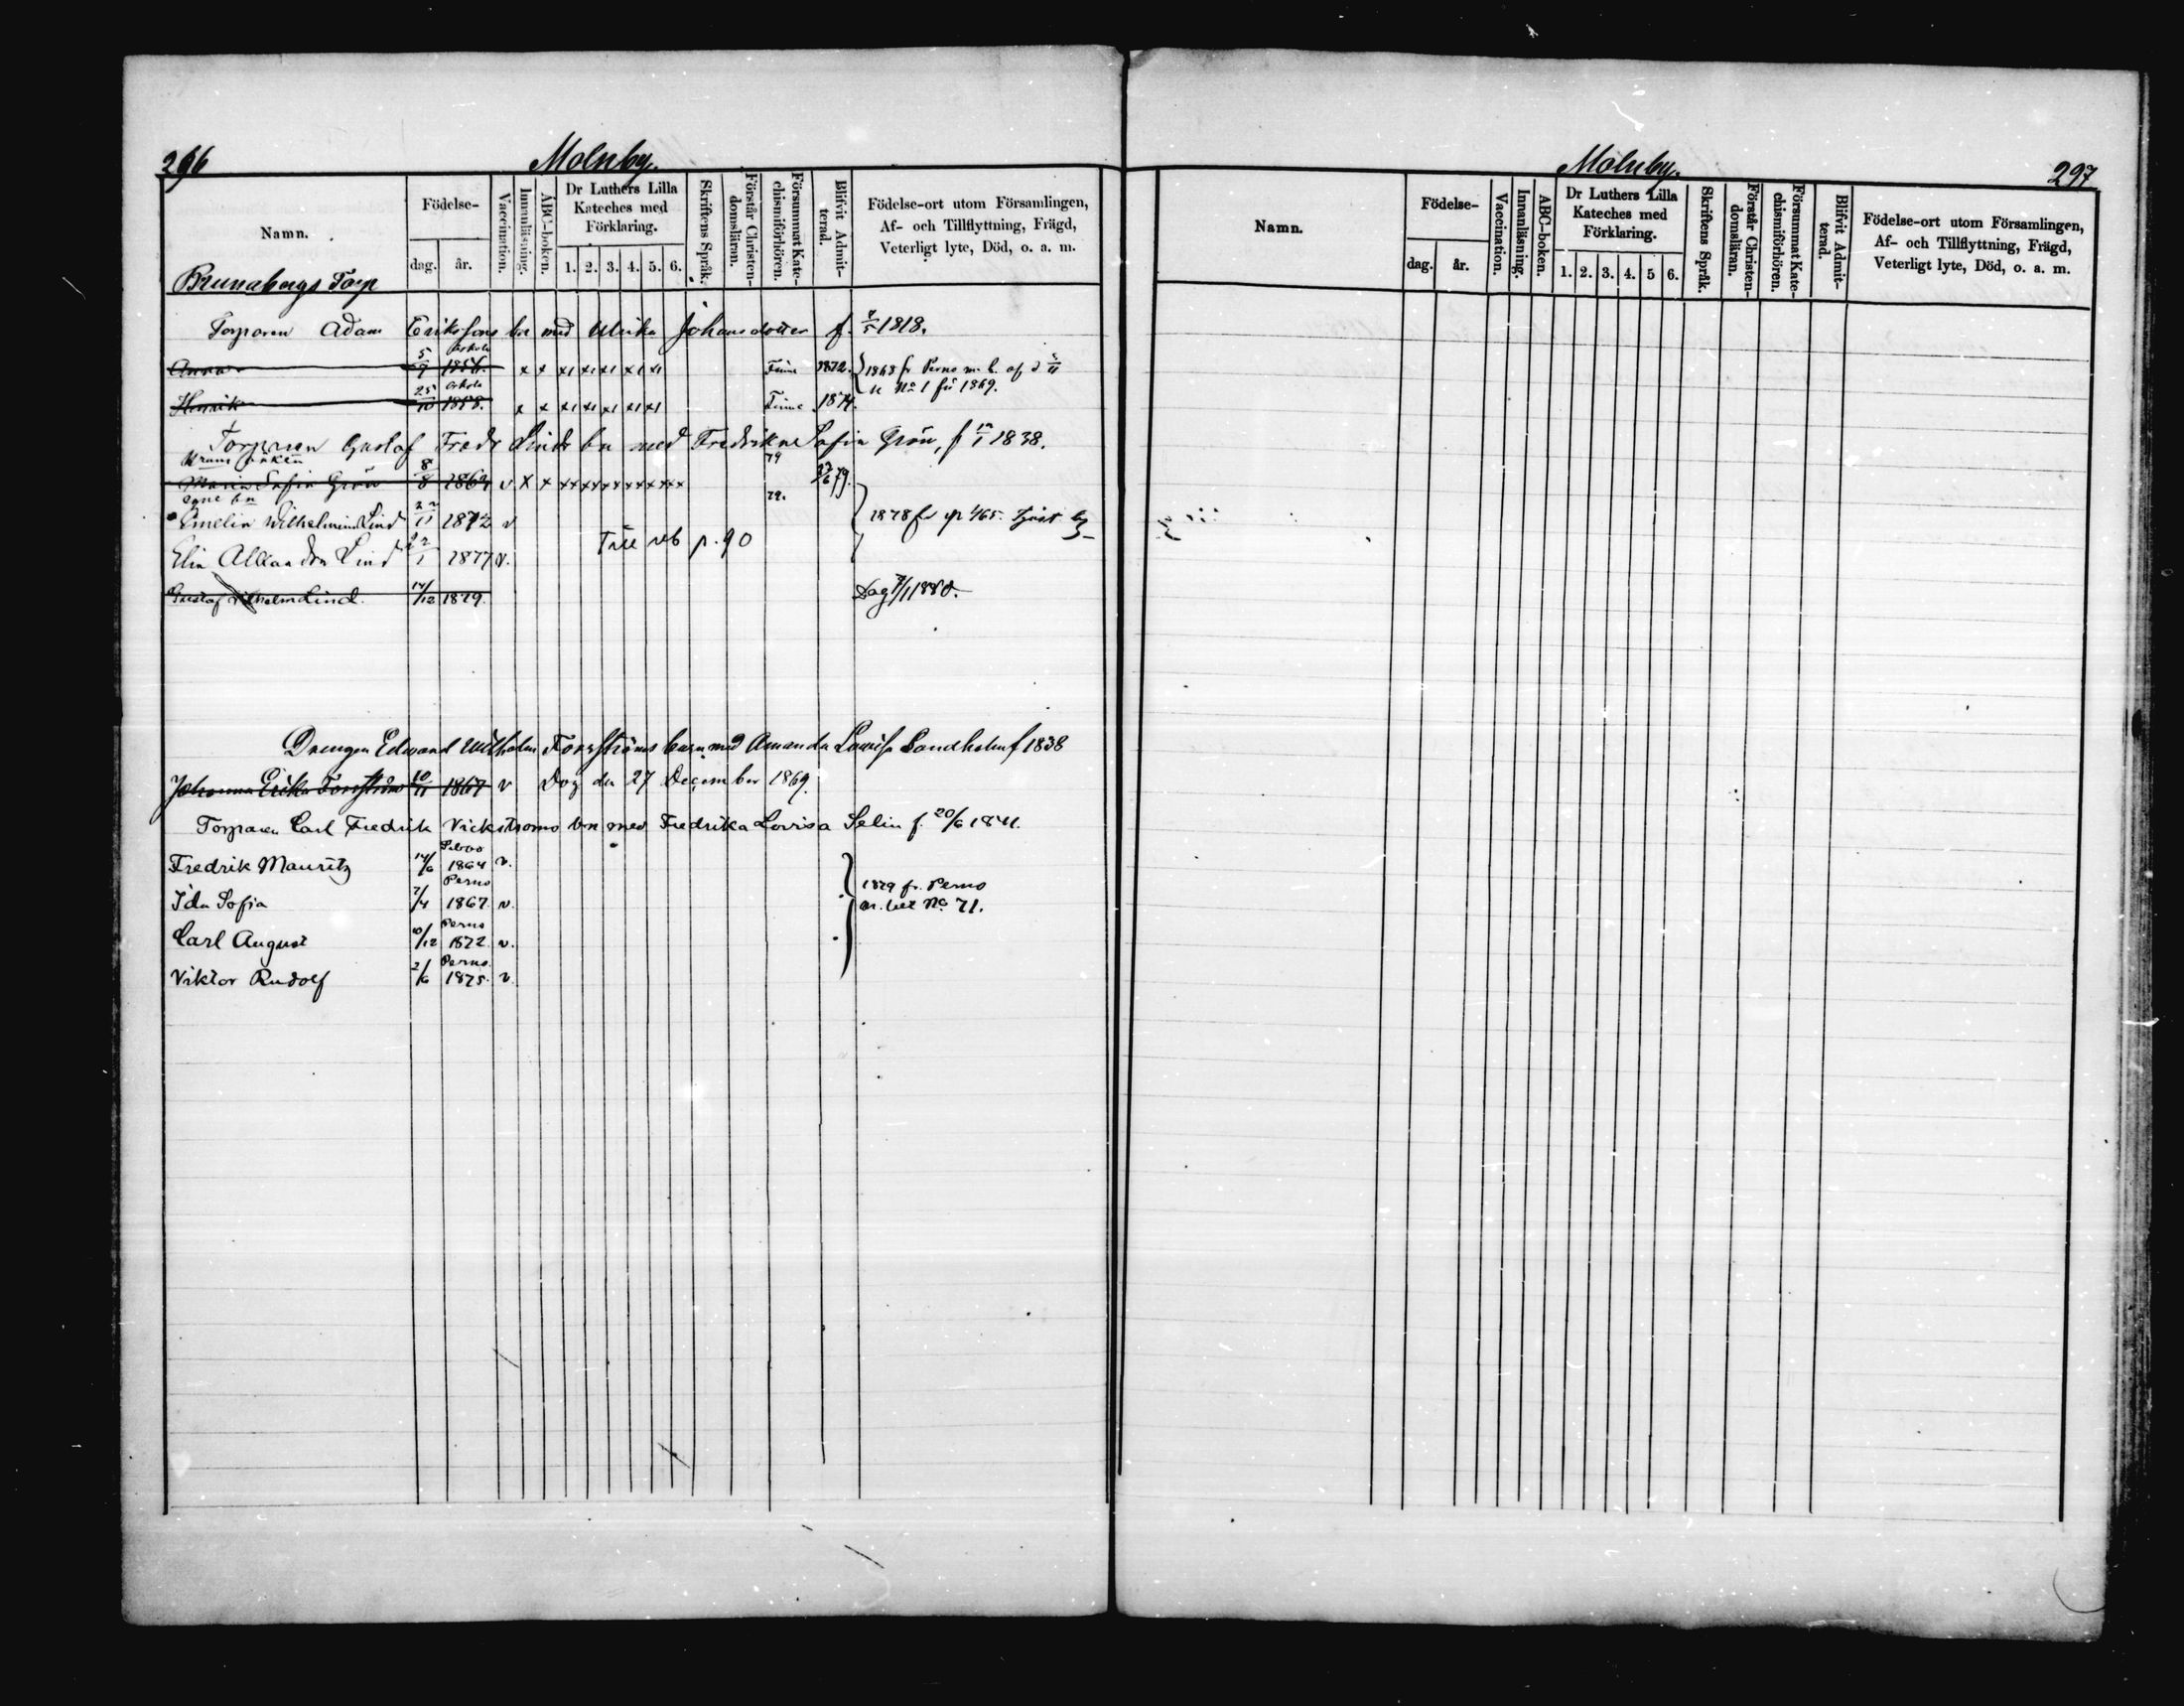 296 Molnby.
Namn. Födelse- dag. år. Vaccination. Innanläsning. ABC-boken. Dr Luthers Lilla Kateches med Förklaring. 1. 2. 3. 4. 5. 6. Skriftens Språk. Förstår Christendomsläran. Försummat Katechismiförhören. Blifvit Admitterad. Födelse-ort utom Församlingen, Af- och Tillflyttning, Frägd, Veterligt lyte, Död, o. a. m.
Brunabergs Torp
Torparen Adam Erikssons bn med Ulrika Johansdotter f. 1818.
Anna 5/9 1856. x x x1 x1 x1 x1 x1 1872. 1868 fr Perno m. b. af d
Henrik 25/10 1858. x x x1 x1 x1 x1 x1 1874. u No 1 för 1869.
Torparen Gustaf Fredr Linds bn med Fredrika Sofia Grön, f 1838.
79
Maria Sofia Grön 8/8 1862 v x x xx xx xx xx xx xx 79.
egne bn 79.
Emelia Wilhelmina Lind 22/11 1872 v 1878 fr
Elin Alexandra Lind 22/1 1877 v. Till nb p. 90
Gustaf Wilhelm Lind. 14/12 1879. Dog 1880.
Drengen Edvard Wilhelm Forsströms barn med Amanda Lovisa Sandholm f 1838
Johanna Erika Forsström 10/11 1867 v Dog den 27 December 1869.
Torparen Carl Fredrik Vickströms bn med Fredrika Lovisa Selin f. 20/6 1841.
Sibbo
Fredrik Mauritz 14/6 1864 v.
Perno
Ida Sofia 7/4 1867. v. 1879 fr. Perno m. bet No 71.
Perno
Carl August 10/12 1872. v.
Perno.
Viktor Rudolf 2/6 1875. v.
Molnby. 297
Namn. Födelse- dag. år. Vaccination. Innanläsning. ABC-boken. Dr Luthers Lilla Kateches med Förklaring. 1. 2. 3. 4. 5 6. Skriftens Språk. Förstår Christendomsläran. Försummat Katechismiförhören. Blifvit Admitterad. Födelse-ort utom Församlingen, Af- och Tillflyttning, Frägd, Veterligt lyte, Död, o. a. m.